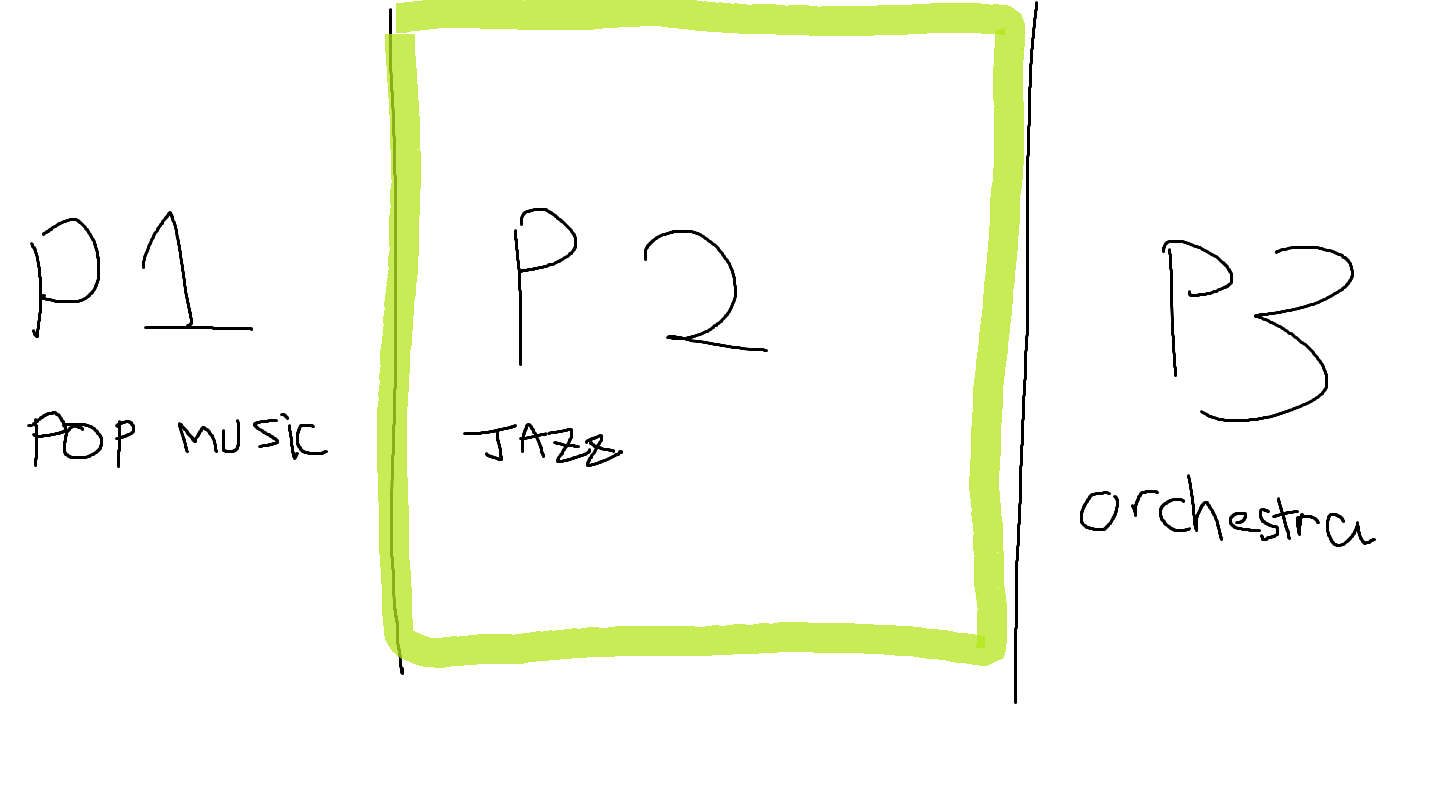 P1
POP MUSIC
P 2
JAZZ
P3
orchestra